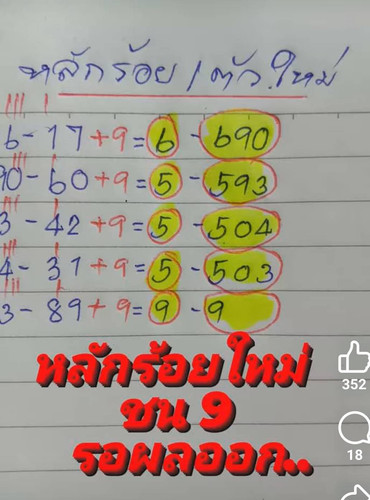 หลักร้อย / ตัวใหม่
6 - 17 + 9 = 6 - 690
90 - 60 + 9 = 5 - 593
3 - 42 + 9 = 5 - 504
4 - 31 + 9 = 5 - 503
3 - 89 + 9 = 9 - 9
หลักร้อยใหม่
ชน 9
รอผลออก..
352
18